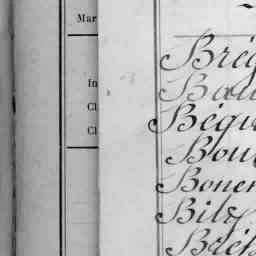 Mar
in
Cl
Cl
Brég
Bau
Béqu
Bou
Boner
Bilz
Brés